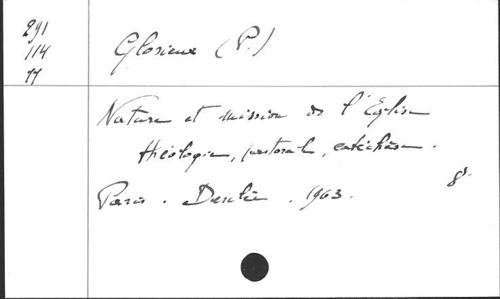 291
114
77
Glorieux (P.)
Nature et mission de l'Eglise
théologie, pastorale, catéchèse.
Paris. Desclée. 1963.
8°.